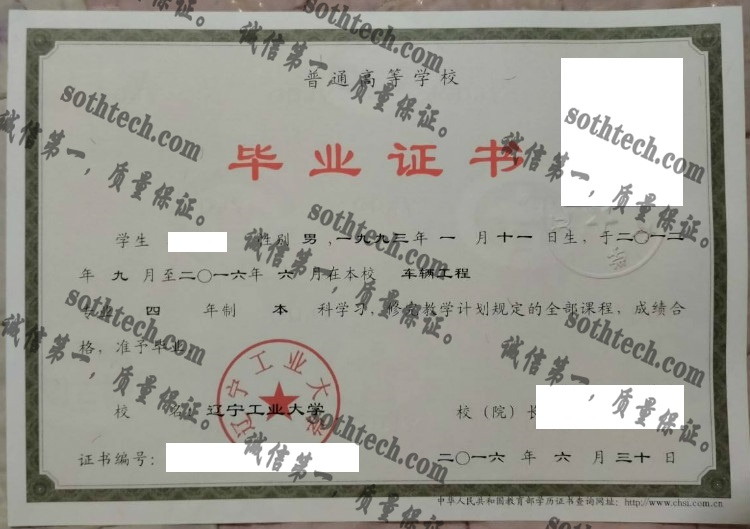 普通高等学校
毕业证书
学生 性别 男 ,一九九三年 一 月 十一 日生，于二〇一二
年 九 月至二〇一六年 六 月在本校 车辆工程
专业 四 年制 本 科学习，修完教学计划规定的全部课程，成绩合
格，准予毕业。
辽宁工业大学
校 名：辽宁工业大学 校（院）长
证书编号： 二〇一六 年 六 月 三十 日
中华人民共和国教育部学历证书查询网址：http://www.chsi.com.cn
sothtech.com
诚信第一，质量保证。
sothtech.com
诚信第一，质量保证。
sothtech.com
诚信第一，质量保证。
sothtech.com
诚信第一，质量保证。
sothtech.com
诚信第一，质量保证。
sothtech.com
诚信第一，质量保证。
sothtech.com
诚信第一，质量保证。
sothtech.com
诚信第一，质量保证。
sothtech.com